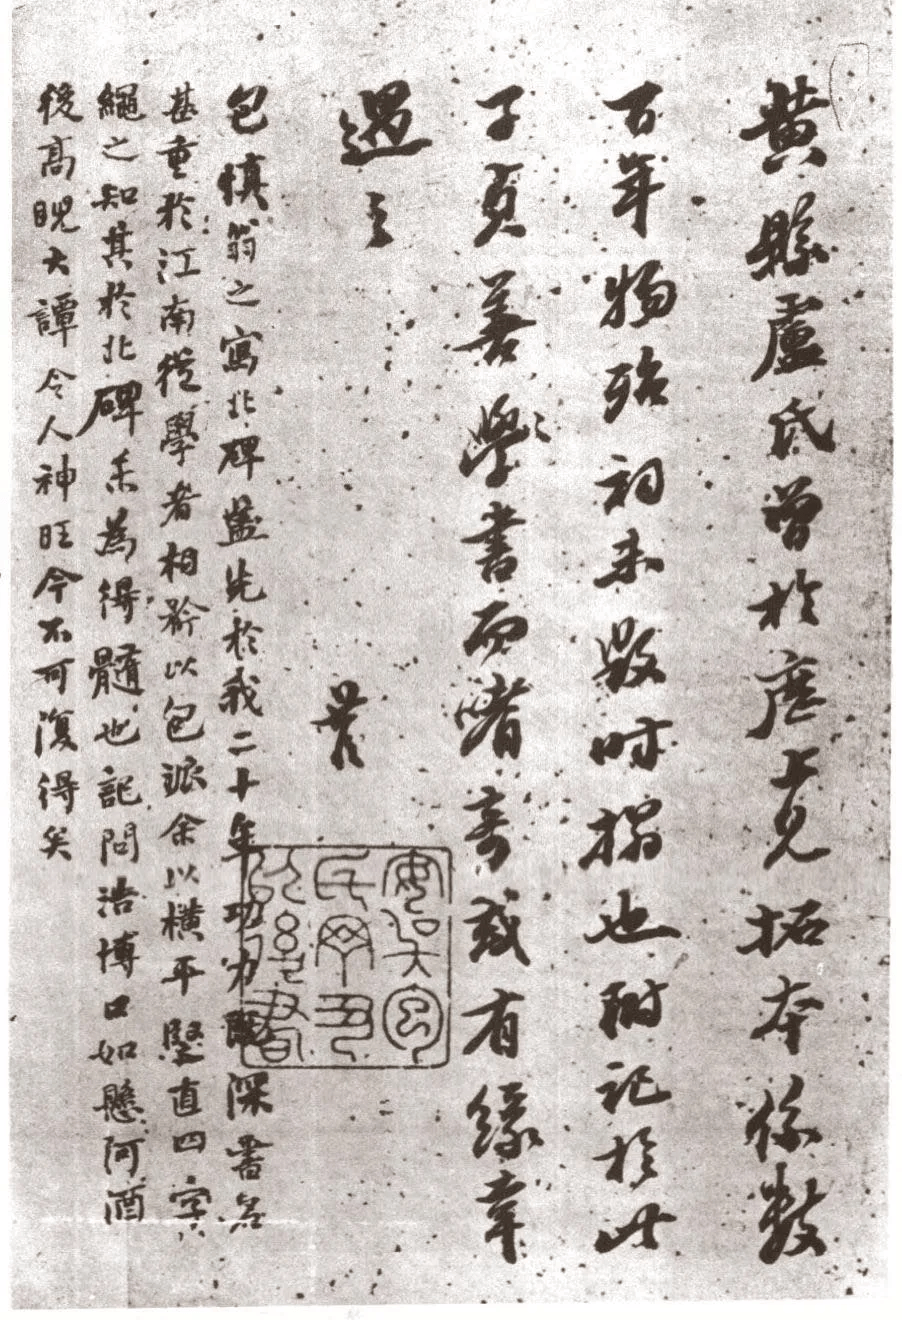 黃縣盧氏曾於座上見拓本係數
百年物殆初未毀時搨也附記於此
子貞善學書而嗜奇或有緣幸
遇之
包慎翁之寫北碑蓋先於我二十年功力既深書名
甚重於江南從學者相矜以包派余以橫平竪直四字
繩之知其於北碑未為得髓也記問浩博口如懸河酒
後高睨大譚令人神旺今不可復得矣